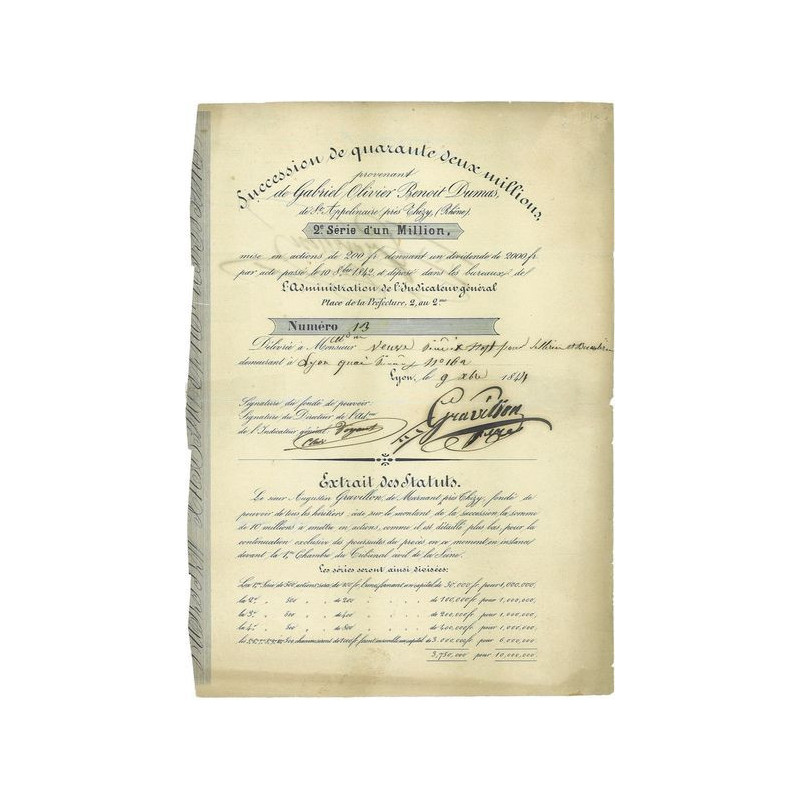 Succession de quarante deux millions,
provenant
de Gabriel Olivier Benoit Dumas,
de St. Appolinaire près Thézy, (Rhône)
2e. Série d'un Million,
mise en actions de 200 fr donnant un dividende de 2000 fr.
par acte passé le 10 8bre 1842 et déposé dans les bureaux de
l'Administration de l'Indicateur général
Place de la Préfecture, 2, au 2me
Numéro 13
Délivrée à Monsieur veuve et
demeurant à Lyon quai No 162
Lyon, le 9 xbre 1844
Signature du fondé de pouvoir.
Signature du Directeur de l'
de l'Indicateur général
Gravillon
Extrait des Statuts.
Le sieur Augustin Gravillon, de Marnant près Thézy, fondé de
pouvoir de tous les héritiers cède sur le montant de la succession la somme
de 10 millions à émettre en actions, comme il est détaillé plus bas, pour la
continuation exclusive des poursuites du procès en ce moment en instance
devant la 1re Chambre du Tribunal civil de la Seine.
Les séries seront ainsi divisées:
La 1re Série de 500 actions de 100 fr, formant un capital de 50,000 fr pour 1,000,000,
la 2e " 500 " de 200 " " " " de 100,000 fr pour 1,000,000,
la 3e " 500 " de 400 " " " " de 200,000 fr pour 1,000,000,
la 4e " 500 " de 800 " " " " de 400,000 fr pour 1,000,000,
les 500 chacune ensemble un capital de 3,000,000 fr pour 6,000,000
3,750,000 pour 10,000,000,